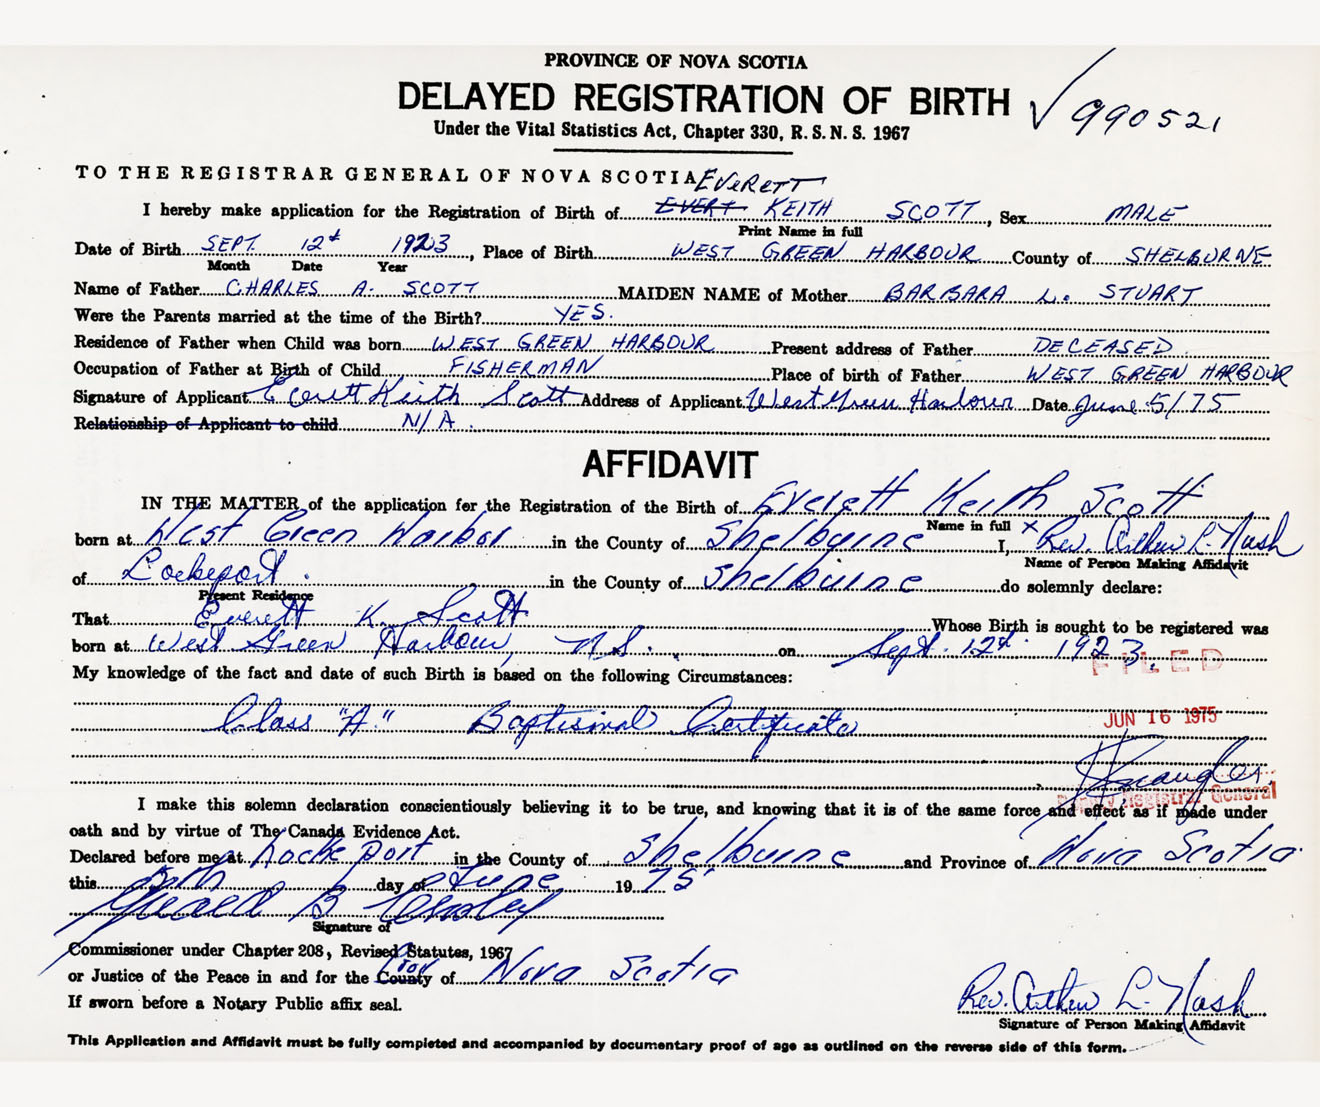 PROVINCE OF NOVA SCOTIA
DELAYED REGISTRATION OF BIRTH ✓ 990521
Under the Vital Statistics Act, Chapter 330, R. S. N. S. 1967
TO THE REGISTRAR GENERAL OF NOVA SCOTIA EVERETT
I hereby make application for the Registration of Birth of EVERT KEITH SCOTT, Sex MALE
Print Name in full
Date of Birth SEPT. 12th 1923, Place of Birth WEST GREEN HARBOUR County of SHELBURNE
Month Date Year
Name of Father CHARLES A. SCOTT MAIDEN NAME of Mother BARBARA L. STUART
Were the Parents married at the time of the Birth? YES.
Residence of Father when Child was born WEST GREEN HARBOUR Present address of Father DECEASED
Occupation of Father at Birth of Child FISHERMAN Place of birth of Father WEST GREEN HARBOUR
Signature of Applicant Everett Keith Scott Address of Applicant West Green Harbour Date June 5/75
Relationship of Applicant to child N/A.
AFFIDAVIT
IN THE MATTER of the application for the Registration of the Birth of Everett Keith Scott
Name in full
born at West Green Harbor in the County of Shelburne I, x Rev. Arthur L. Nash
Name of Person Making Affidavit
of Lockeport. in the County of Shelburne do solemnly declare:
Present Residence
That Everett K. Scott Whose Birth is sought to be registered was
born at West Green Harbour, N.S. on Sept. 12th 1923.
FILED
My knowledge of the fact and date of such Birth is based on the following Circumstances:
Class "A." Baptismal Certificate
JUN 16 1975
Deputy Registrar General
I make this solemn declaration conscientiously believing it to be true, and knowing that it is of the same force and effect as if made under
oath and by virtue of The Canada Evidence Act.
Declared before me at Lockeport in the County of Shelburne and Province of Nova Scotia
this day of June 1975
B
Signature of
Commissioner under Chapter 208, Revised Statutes, 1967
or Justice of the Peace in and for the County of Nova Scotia
If sworn before a Notary Public affix seal.
Rev. Arthur L. Nash
Signature of Person Making Affidavit
This Application and Affidavit must be fully completed and accompanied by documentary proof of age as outlined on the reverse side of this form.